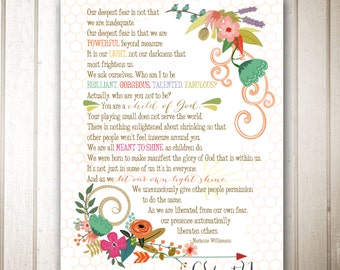 Our deepest fear is not that
we are inadequate.
Our deepest fear is that we are
POWERFUL beyond measure
It is our LIGHT, not our darkness that
most frightens us.
We ask ourselves. Who am I to be
BRILLIANT, GORGEOUS, TALENTED, FABULOUS?
Actually, who are you not to be?
You are a child of God.
Your playing small does not serve the world.
There is nothing enlightened about shrinking so that
other people won't feel insecure around you.
We are all MEANT TO SHINE as children do.
We were born to make manifest the glory of God that is within us.
It's not just in some of us; it's in everyone.
And as we let our own light shine,
We unconsciously give other people permission
to do the same.
As we are liberated from our own fear,
our presence automatically
liberates others.
- Marianne Williamson